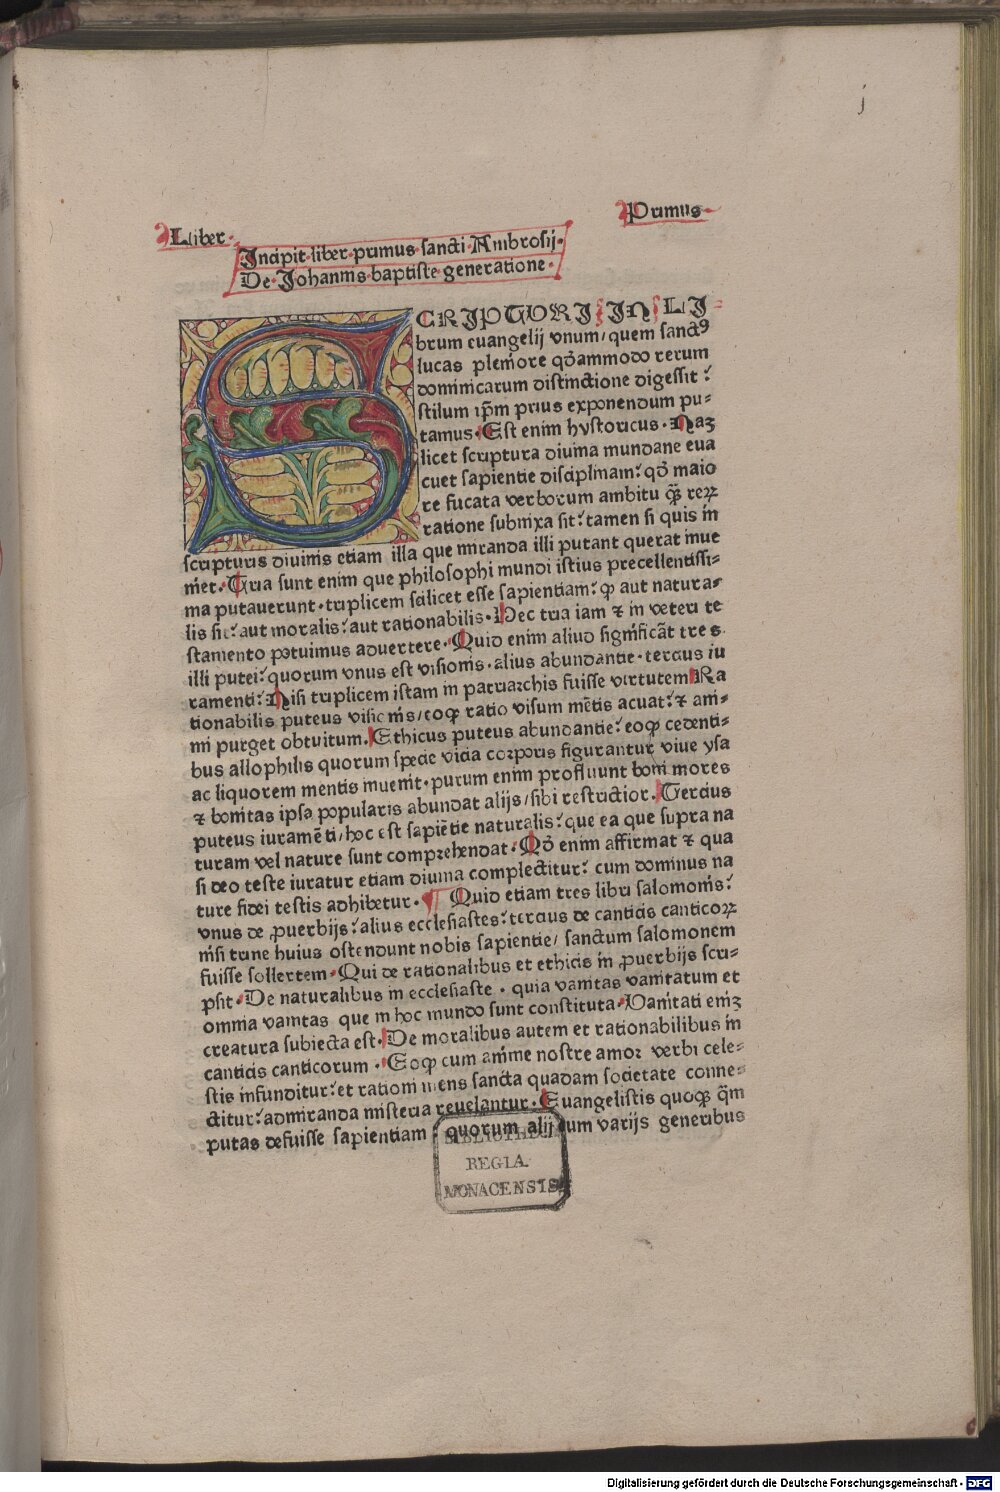 j
Liber· Primus
Incipit liber primus sancti Ambrosij·
De Johannis baptiste generatione·
SCRIPTURI IN LI
brum euangelij vnum/ quem sanctꝰ
lucas plenīore qōammodo rerum
dominicarum distinctione digessit:
stilum ip̄m prius exponendum pu-
tamus· Est enim hystoricus· Naꝫ
licet scriptura diuina mundane eua
cuet sapientie disciplinam: qō maio
re fucata verborum ambitu qᷓꝫ reꝝ
ratione subnixa sit: tamen si quis in
scripturis diuinis etiam illa que miranda illi putant querat inue
niet· Tria sunt enim que philosophi mundi istius precellentissi-
ma putauerunt· triplicem scilicet esse sapientiam: ꝙ aut natura-
lis sit: aut moralis: aut rationabilis· Hec tria iam ⁊ in veteri te
stamento potuimus aduertere· Quid enim aliud significāt tres
illi putei: quorum vnus est visionis· alius abundantie· tercius iu
ramenti: Nisi triplicem istam in patriarchis fuisse virtutem Ra
tionabilis puteus visionis/ eoqꝫ ratio visum mētis acuat: ⁊ ani-
mi purget obtuitum. Ethicus puteus abundantie: eoqꝫ cedenti-
bus allophilis quorum specie vicia corporis figurantur viue ysa
ac liquorem mentis inuenit· purum enim profluunt boni mores
⁊ bonitas ipsa popularis abundat alijs/ sibi restrictior. Tercius
puteus iuramēti/ hoc est sapiētie naturalis: que ea que supra na
turam vel nature sunt comprehendat· Qō enim affirmat ⁊ qua
si deo teste iuratur etiam diuina complectitur: cum dominus na
ture fidei testis adhibetur· ¶ Quid etiam tres libri salomonis:
vnus de ꝓuerbijs: alius ecclesiastes: tercius de canticis canticoꝝ
nisi trine huius ostendunt nobis sapientie/ sanctum salomonem
fuisse sollertem· Qui de rationalibus et ethicis in ꝓuerbijs scri-
psit· De naturalibus in ecclesiaste· quia vanitas vanitatum et
omnia vanitas que in hoc mundo sunt constituta· Vanitati eniꝫ
creatura subiecta est. De moralibus autem et rationabilibus in
canticis canticorum· Eoqꝫ cum anime nostre amor verbi cele-
stis infunditur: et rationi mens sancta quadam societate conne-
ctitur: admiranda misteria reuelantur· Euangelistis quoqꝫ qᷓm
putas defuisse sapientiam· quorum alij cum varijs generibus
BIBLIOTHECA
REGIA
MONACENSIS
Digitalisierung gefördert durch die Deutsche Forschungsgemeinschaft - DFG